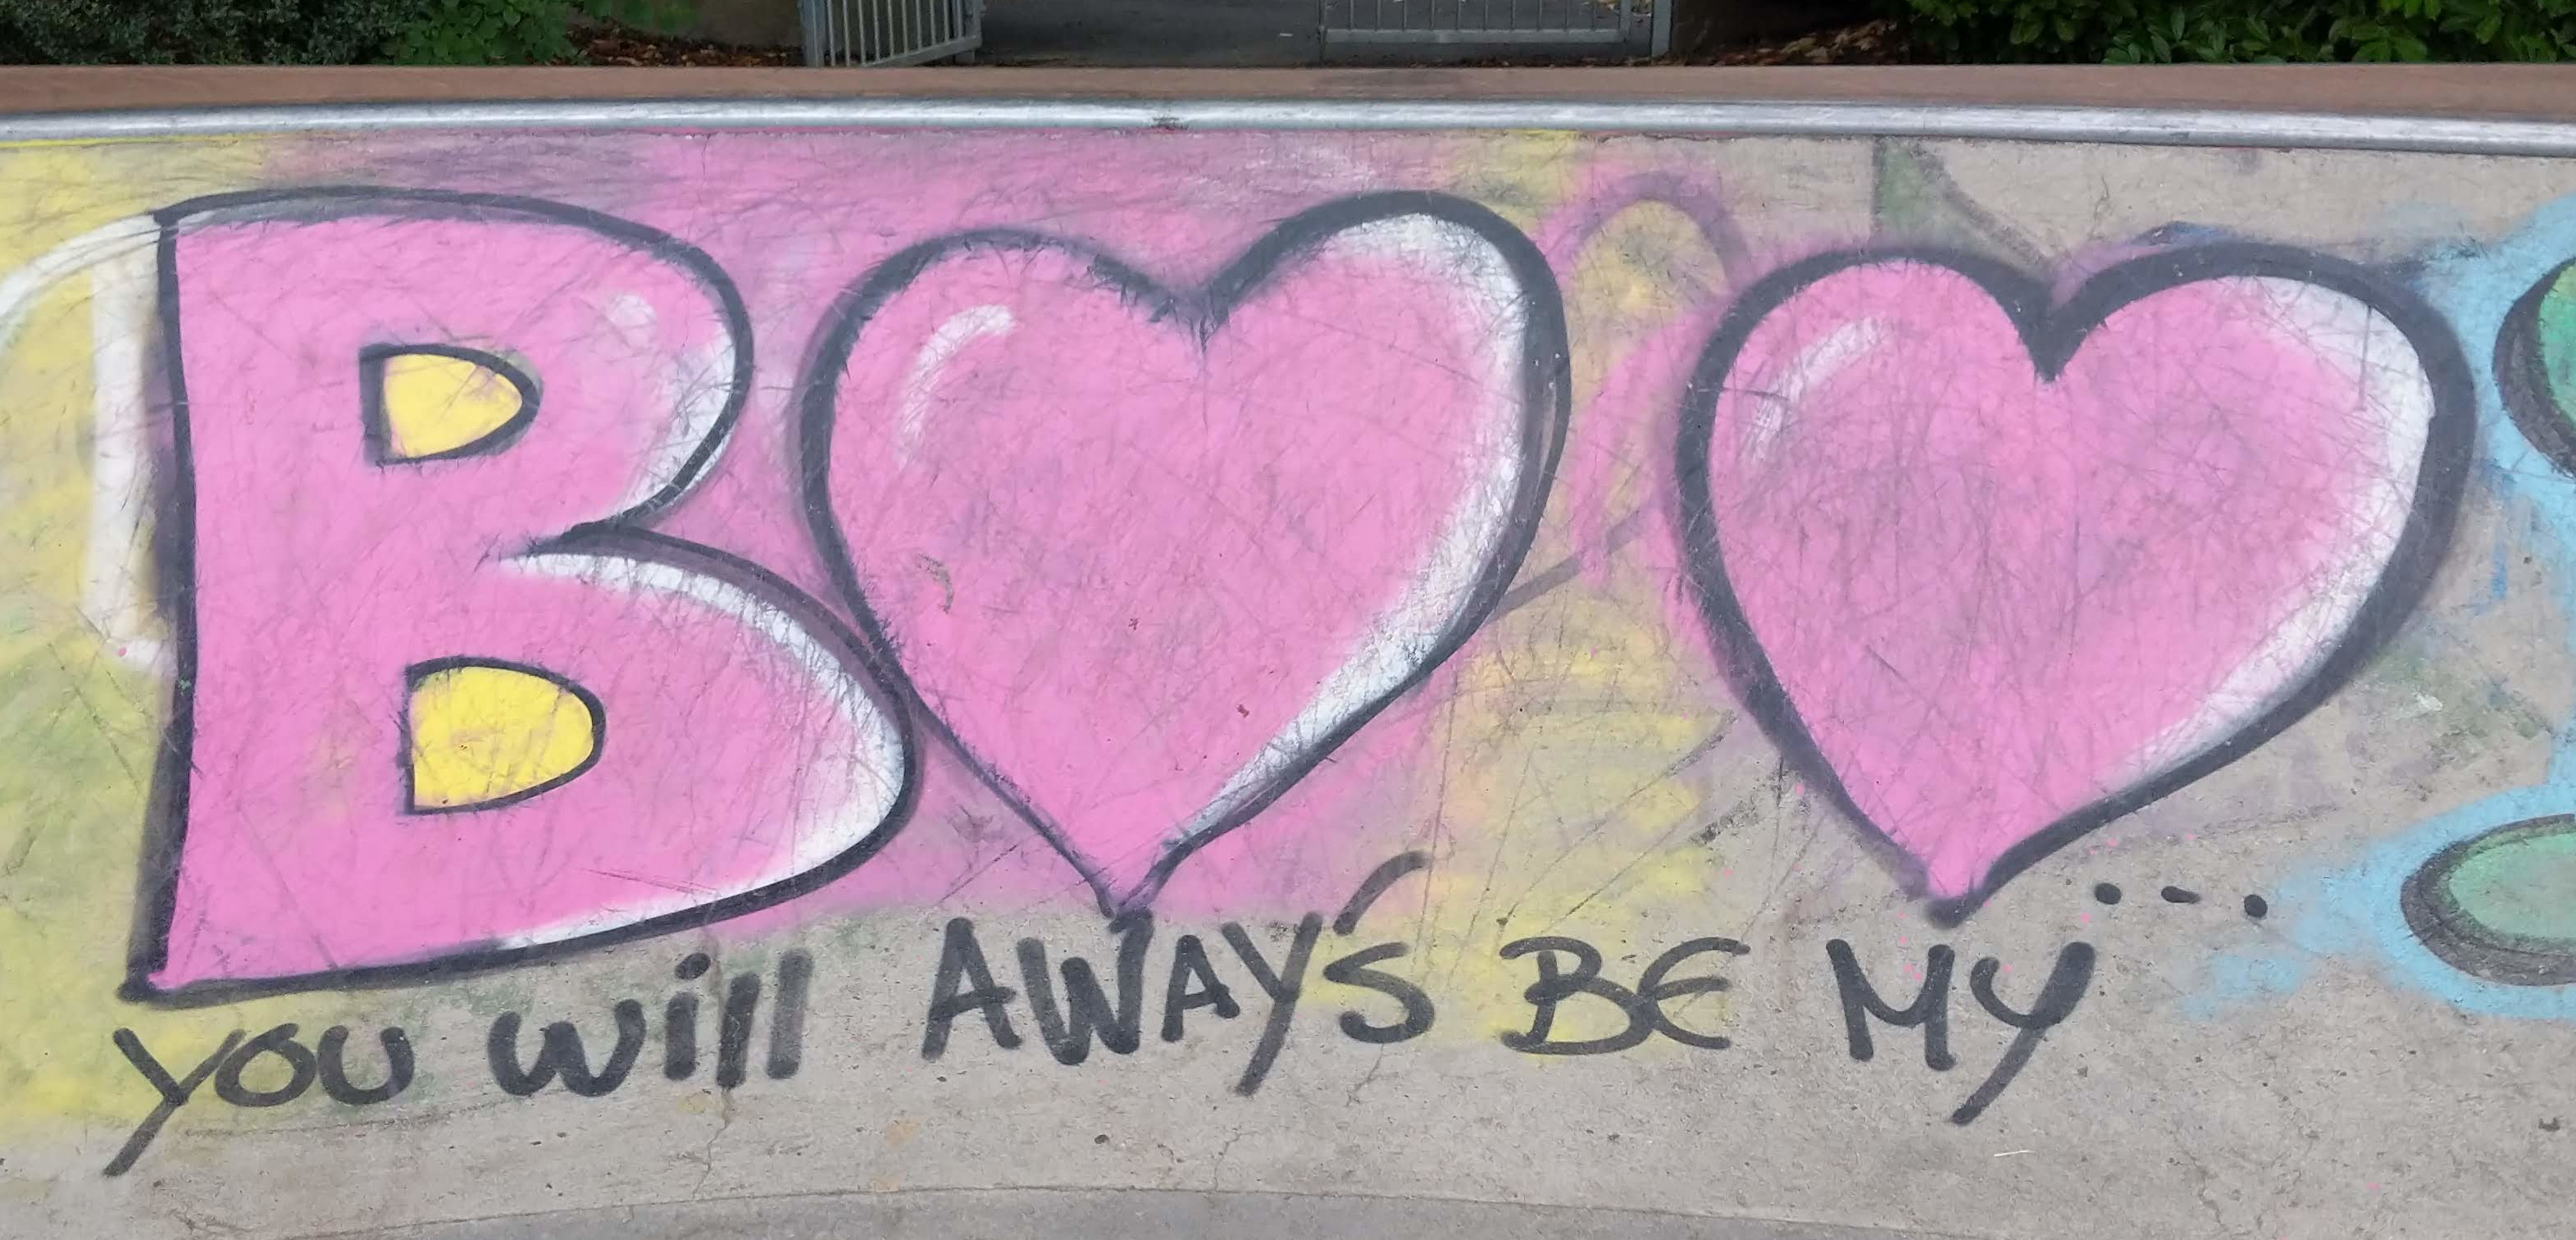 B♥♥
you will AWAY'S BE MY ...